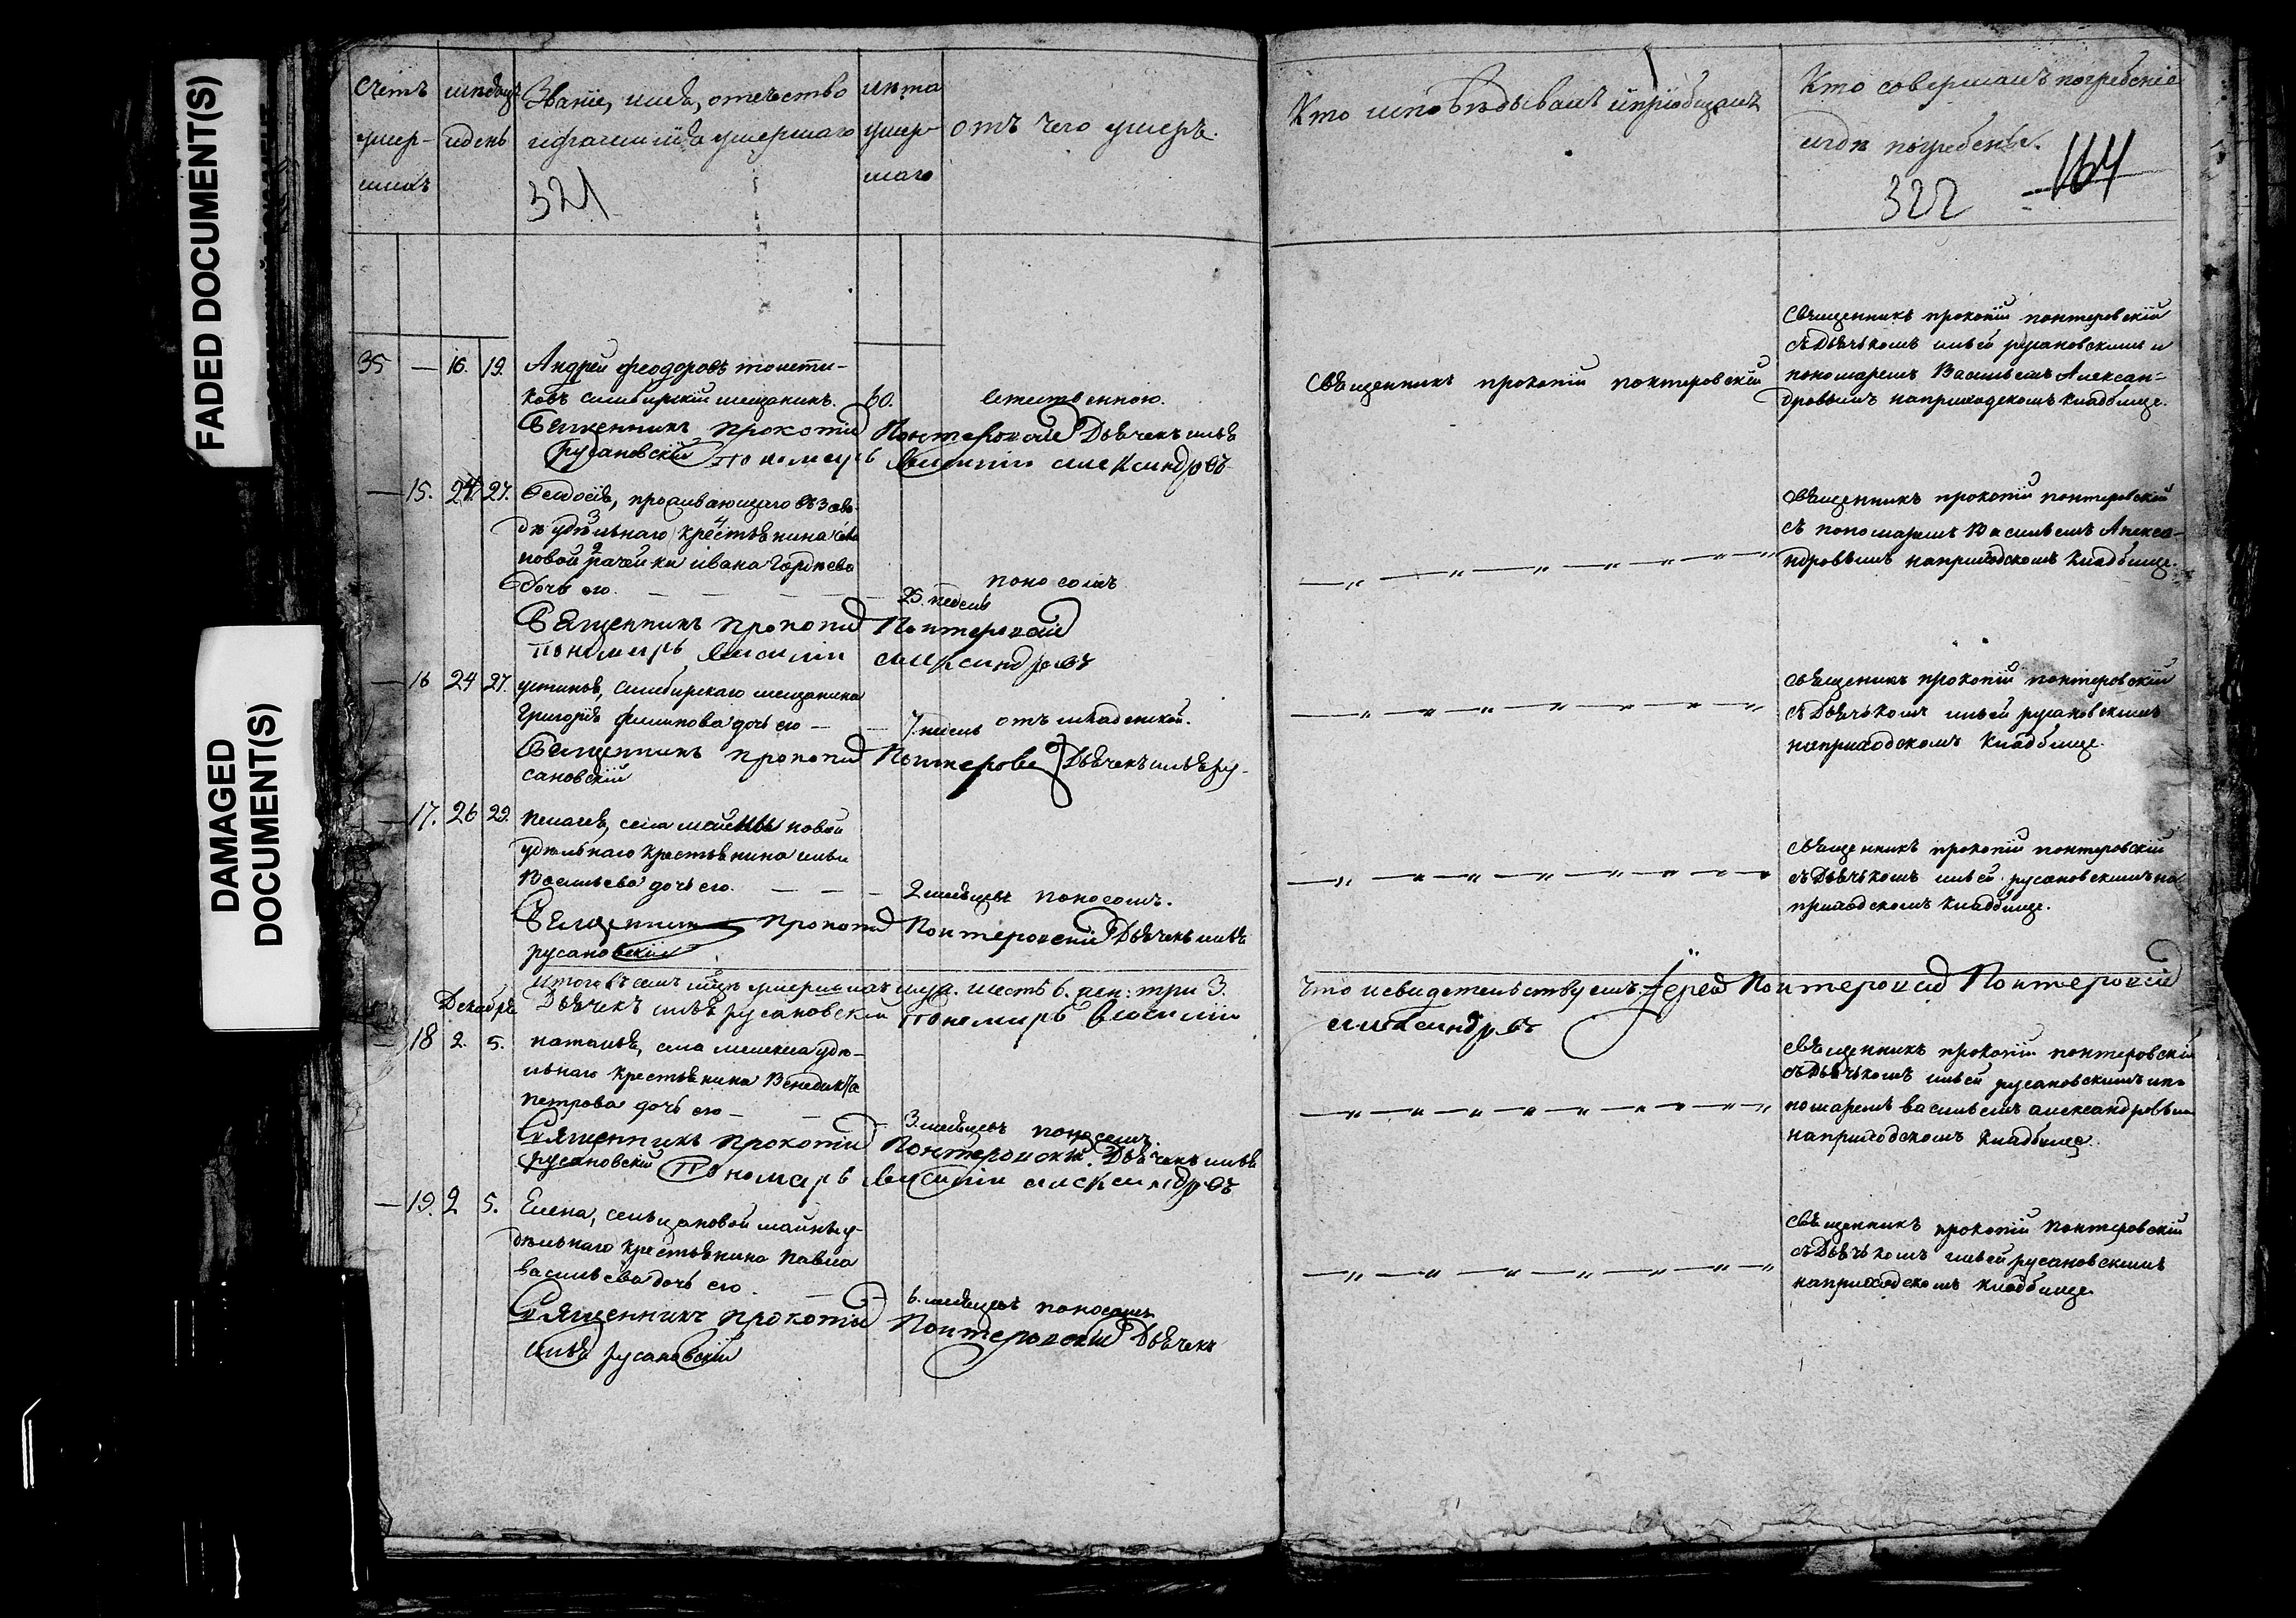 FADED DOCUMENT(S)
DAMAGED
DOCUMENT(S)
Счетъ
умер-
шихъ
мѣсяцъ
и день
Званіе, имя, отечество
и фамилія умершаго
321
лѣта
умер-
шаго
отъ чего умеръ.
Кто исповѣдывалъ и пріобщалъ
Кто совершалъ погребеніе
и гдѣ погребены.
322
164
35 — 16. 19. Андрей феодоровъ
ковъ симбирскій мещанинъ. 60. естественною.
Священникъ прокопій Понтеровскій Дьячекъ илья
русановскій пономарь василий александровъ
Священникъ прокопій понтеровскій
Священникъ прокопій понтеровскій
съ Дьячькомъ ильей русановскимъ и
пономаремъ Васильемъ Алексан-
дровымъ наприходскомъ кладбище.
— 15. 24 27. Ѳеодосія, проживающаго въ Заво-
дѣ удѣльнаго крестьянина села
новой рачейки ивана Гордѣева
дочь его. — — — 25. недель поносомъ
Священникъ прокопій Понтеровский
пономарь василий александровъ
Священникъ прокопій понтеровскій
съ пономаремъ Васильемъ Алекса-
ндровымъ наприходскомъ кладбище.
— 16 24 27. устинья, симбирскаго мещанина
Григорія филипова дочь его — — 7. нѣдель отъ младенской.
Священникъ прокопий Понтеровс Дьячекъ илья ру-
сановскій
священикъ прокопій понтеровскій
съ Дьячькомъ ильей русановскимъ
наприходскомъ кладбище.
— 17. 26 29. пелагея, села майны новой
удѣльнаго крестьянина ильи
Васильева дочь его. — — — 2 месяцевъ поносомъ.
Священник прокопий Понтеровский Дьячекъ илья
русановскій
священникъ прокопій понтеровскій
съ Дьячькомъ ильей русановскимъ на
приходскомъ кладбище.
итого въ семъ мѣсяцѣ умершихъ муж. шесть 6. жен: три 3.
Дьячекъ илья русановскій пономарь василий
что и свидетельствуемъ. Іерей Понтеровский
александровъ
Декабрь
— 18 2. 5. наталья, села мелекеса удѣ-
льнаго крестьянина Венедикта
петрова дочь его — — — 3. месяцевъ поносомъ.
Священникъ прокопий Понтеровский. Дьячекъ илья
русановскій Пономарь василий александровъ
священникъ прокопій понтеровскій
съ Дьячькомъ ильей русановскимъ и по
номаремъ васильемъ александровымъ
наприходскомъ кладбище.
— 19. 2 5. Елена, сельца новой майны у-
дѣльнаго крестьянина павла
васильева дочь его. — — 6. месяцевъ поносомъ
Священникъ прокопий Понтеровский Дьячекъ
илья русановскій
священникъ прокопій Понтеровскій
съ Дьячькомъ ильей русановскимъ
наприходскомъ кладбище